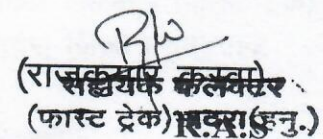 (राजकुमार कस्वा)
सहायक कलक्टर
(फास्ट ट्रेक) भादरा (हनु.)
R.A.S